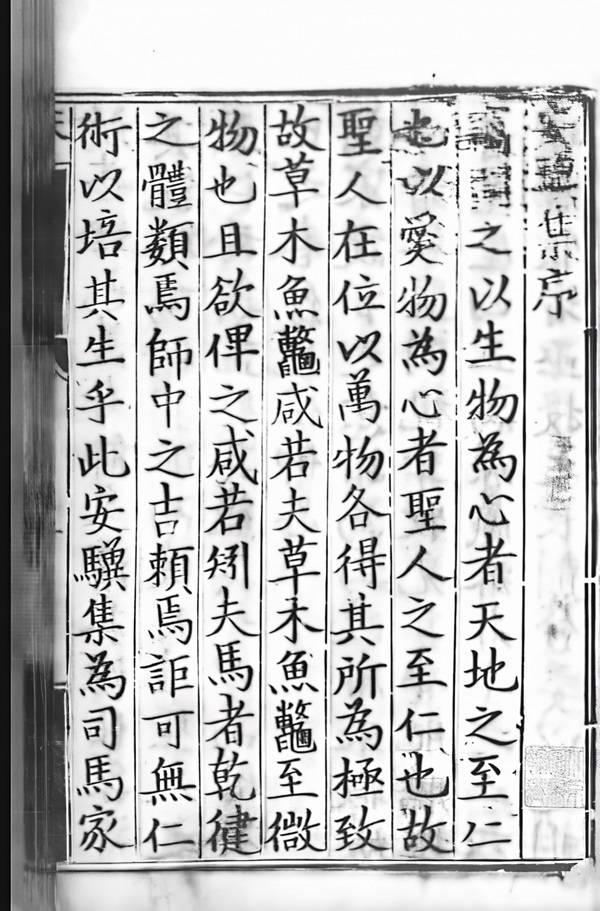 集序
之以生物為心者天地之至仁
也以愛物為心者聖人之至仁也故
聖人在位以萬物各得其所為極致
故草木魚鼈咸若夫草木魚鼈至微
物也且欲俾之咸若矧夫馬者乾健
之體類焉師中之吉賴焉詎可無仁
術以培其生乎此安驥集為司馬家